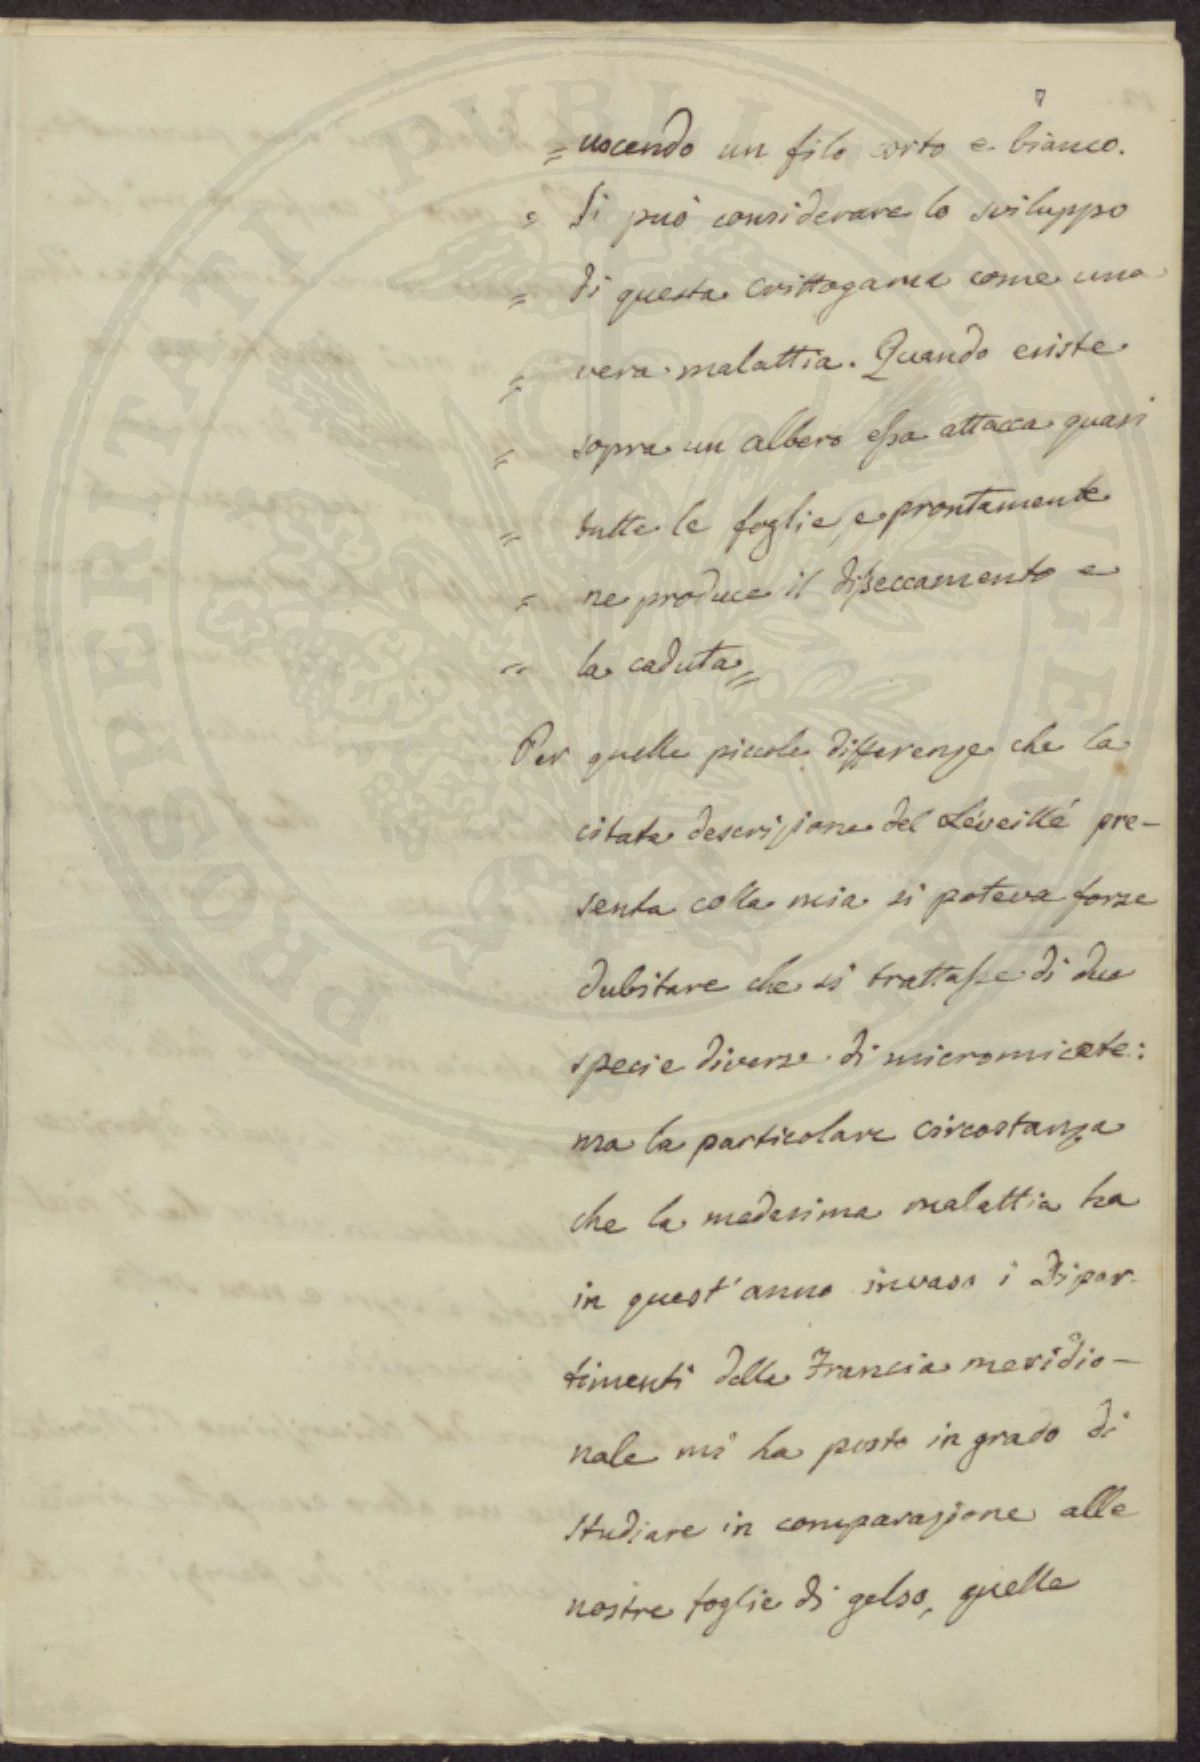 7
= uscendo un filo corto e bianco.
= Si può considerare lo sviluppo
= di questa Crittogama come una
= vera malattia. Quando esiste
= sopra un albero essa attacca quasi
= tutte le foglie, e prontamente
= ne produce il disseccamento e
= la caduta =
Per quelle piccole differenze che la
citata descrizione del Léveillé pre-
senta colla mia si poteva forse
dubitare che si trattasse di due
specie diverse di micromicete:
ma la particolare circostanza
che la medesima malattia ha
in quest'anno invaso i Dipar-
timenti della Francia meridio-
nale mi ha posto in grado di
studiare in comparazione alle
nostre foglie di gelso, quelle
PROSPERITATI PUBLICAE AUGENDAE